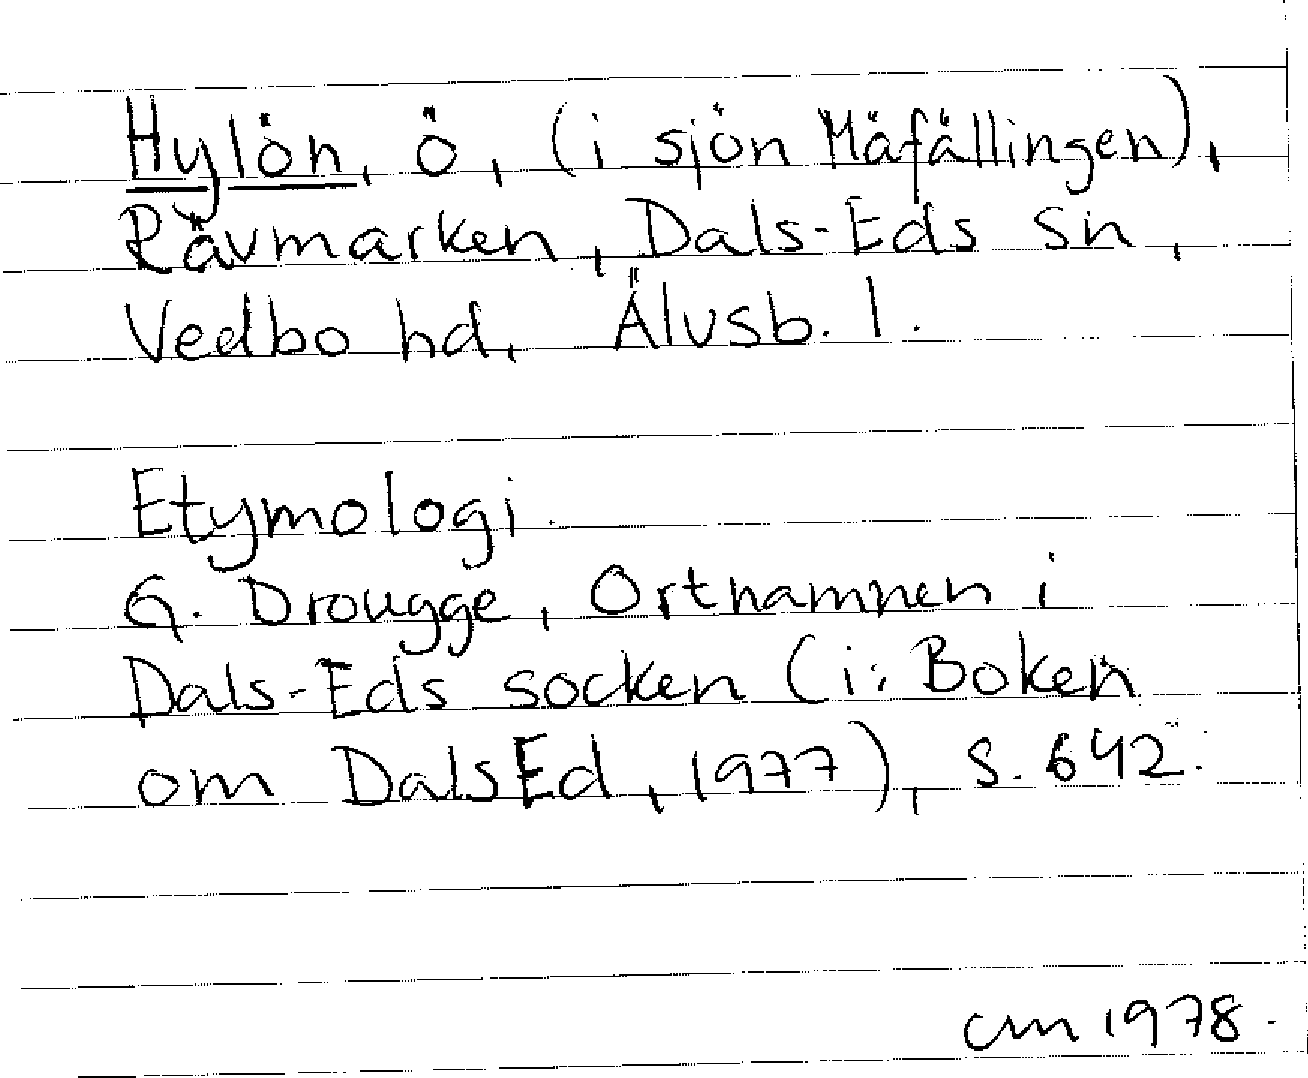 Hylön, ö, (i sjön Mäfällingen),
Rävmarken, Dals-Eds sn,
Vedbo hd, Älvsb. l.
Etymologi.
G. Drougge, Ortnamnen i
Dals-Eds socken (i: Boken
om DalsEd, 1977), s. 642.
cm 1978.